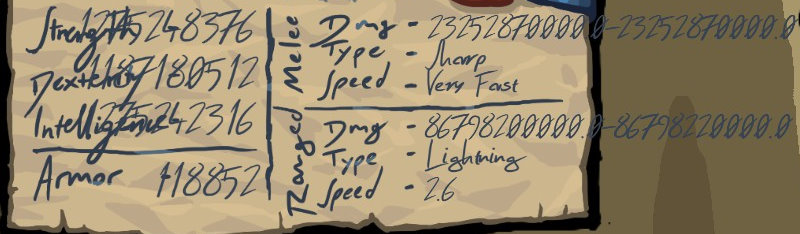 Strength
Dexterity
Intelligence
Armor 118852
Melee
Dmg - 23252870000.0-23252870000.0
Type - Sharp
Speed - Very Fast
Ranged
Dmg - 86798200000.0-86798220000.0
Type - Lightning
Speed - 2.6